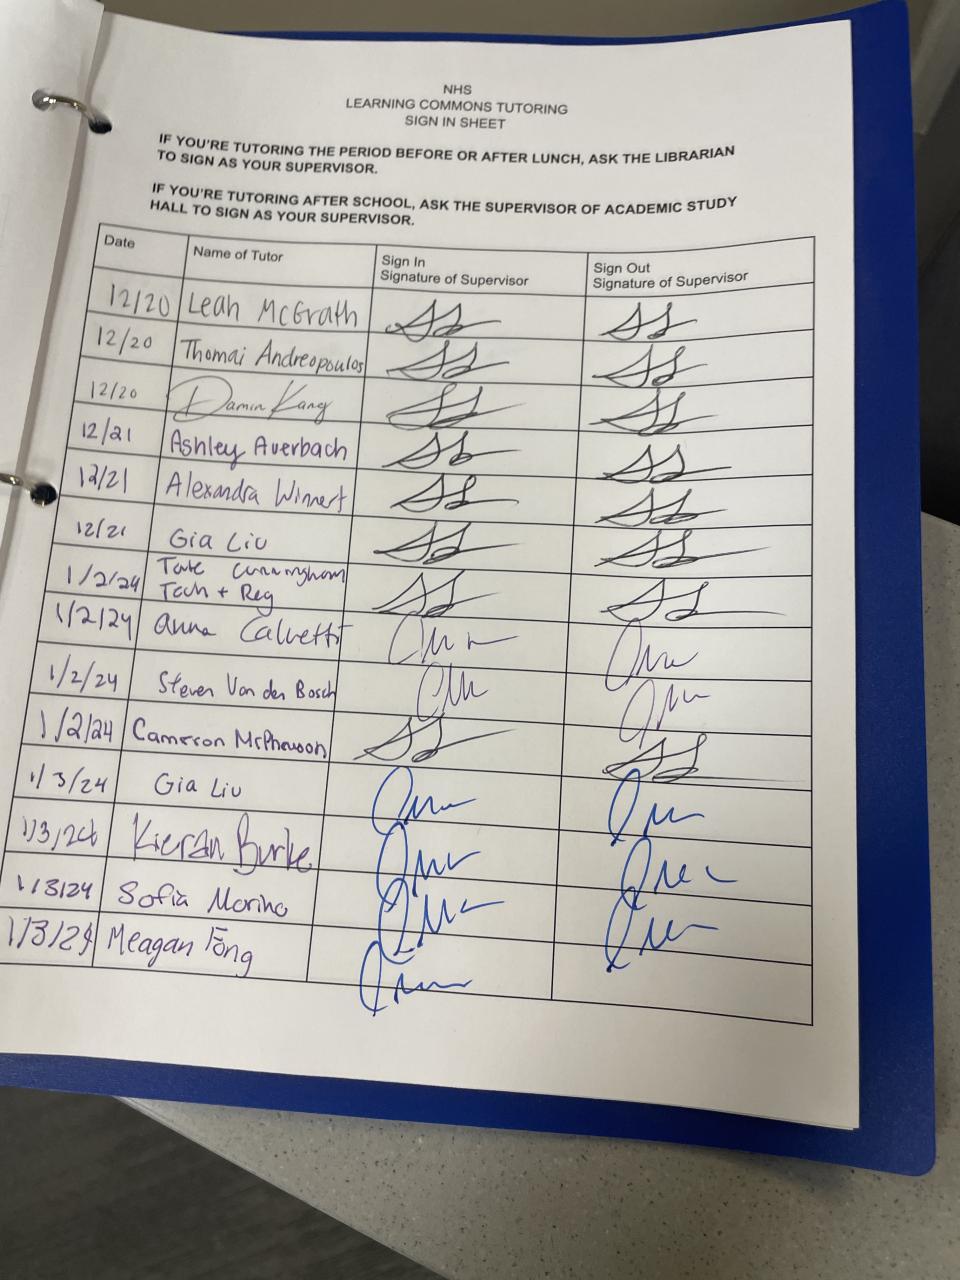 NHS
LEARNING COMMONS TUTORING
SIGN IN SHEET
IF YOU'RE TUTORING THE PERIOD BEFORE OR AFTER LUNCH, ASK THE LIBRARIAN
TO SIGN AS YOUR SUPERVISOR.
IF YOU'RE TUTORING AFTER SCHOOL, ASK THE SUPERVISOR OF ACADEMIC STUDY
HALL TO SIGN AS YOUR SUPERVISOR.
Date Name of Tutor Sign In Sign Out
Signature of Supervisor Signature of Supervisor
12/20 Leah McGrath
12/20 Thomai Andreopoulos
12/20 Damin Kang
12/21 Ashley Averbach
12/21 Alexandra Winnert
12/21 Gia Liu
1/2/24 Tate Cunningham
Tech + Reg
1/2/24 Anna Calvetti
1/2/24 Steven Van den Bosch
1/2/24 Cameron McPhewoon
1/3/24 Gia Liu
1/3/24 Kieran Burke
1/3/24 Sofia Marino
1/3/24 Meagan Fong